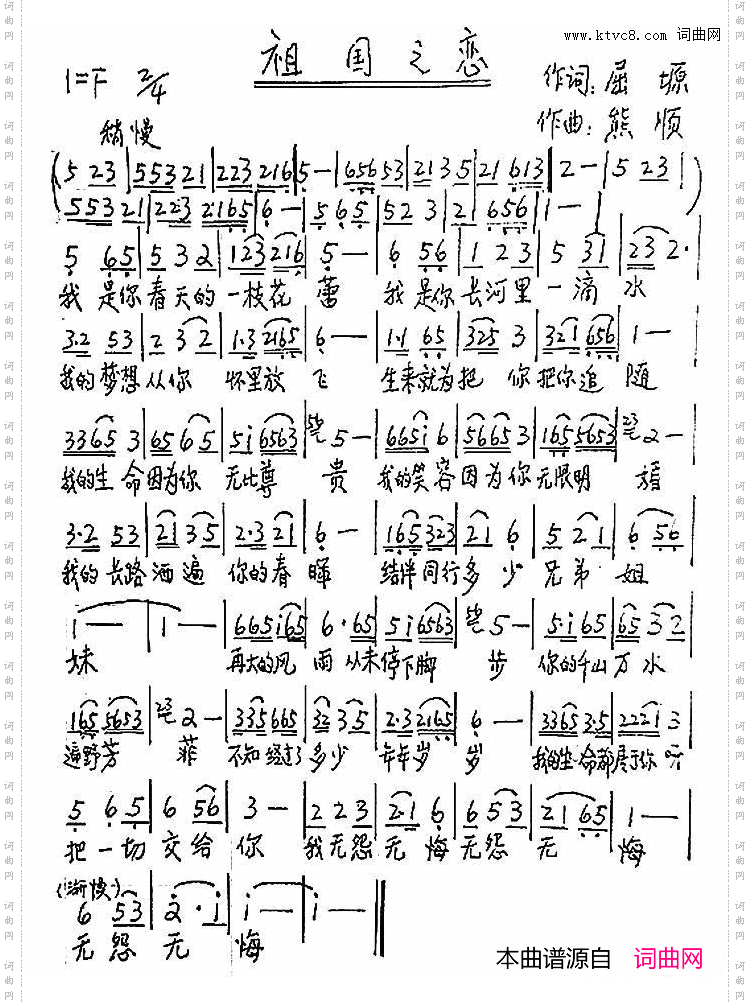 www.ktvc8.com 词曲网
祖国之恋
1=F 2/4
作词:屈塬
作曲:熊顺
稍慢
(5 23|553 21|223 216|5 —|656 53|213 5|21 613|2 —|5 23|
553 21|223 2·165|6 —|5 65|52 3|21 656|1 —|)
5 65|5 3 2|123 216|5 —|6 56|1 23|5 31|23 2·
我是你春天的一枝花蕾 我是你长河里一滴水
3·2 53|2 32|1·3 2165|6 —|1·1 65|325 3|321 656|1 —
我的梦想从你怀里放飞 生来就为把你把你追随
3365 3|65 65|5i 6563|5 —|665i 6|5665 3|165 5653|2 —
我的生命因为你无比尊贵 我的笑容因为你无限明媚
3·2 53|21 35|2·3 21|6 —|165 323|21 6|5 21|6 56
我的长路洒遍你的春晖 结伴同行多少兄弟姐
i —|i —|665i 65|6·65|5i 6563|5 —|5·i 65|65 32
妹 再大的风雨从未停下脚步 你的千山万水
165 5653|2 —|335 665|32 35|2·3 2165|6 —|3365 3·5|2221 3
遍野芳菲 不知经过了多少年年岁岁 我的生命都属于你呀
5 65|6 56|3 —|2 2 3|2·1 6|6 53|21 65|1 —
把一切交给你 我无怨无悔无怨无悔
(渐慢)
6 53|2·i|i —|i —‖
无怨无悔
本曲谱源自 词曲网